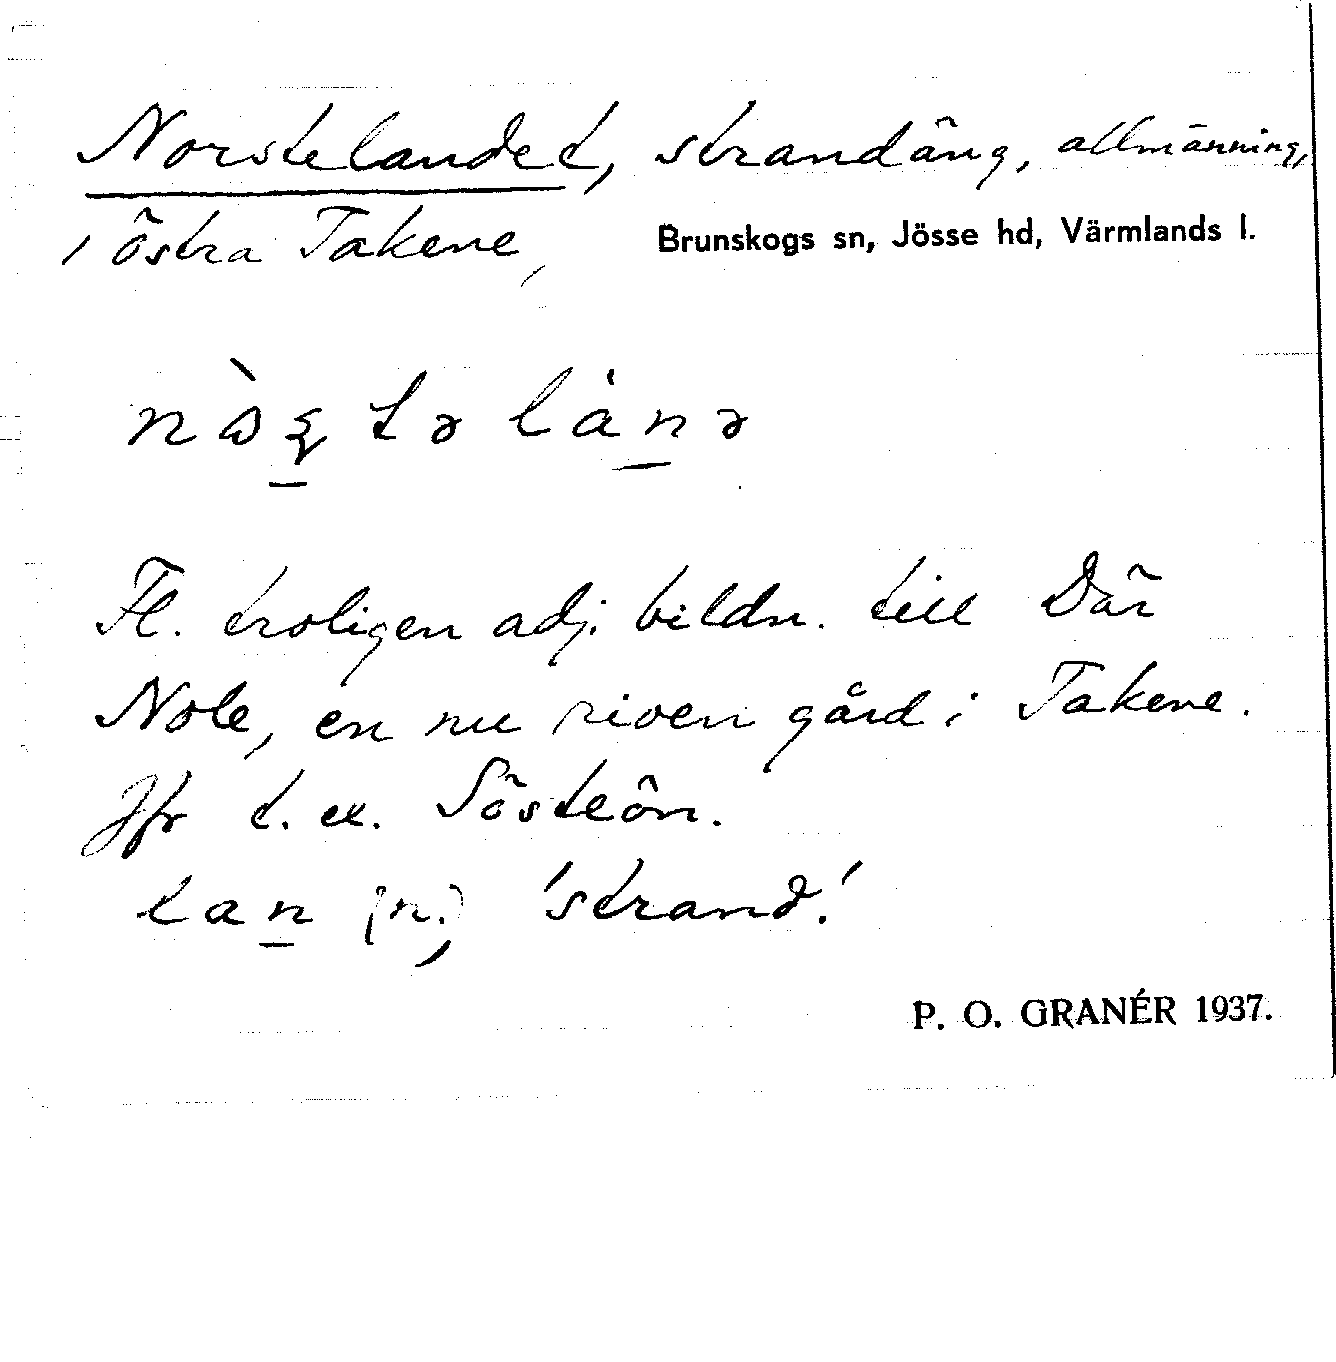 Norstelandet, strandäng, allmänning,
i östra Takene, Brunskogs sn, Jösse hd, Värmlands l.
Fl. troligen adj. bildn. till Där
Nole, en nu riven gård i Takene.
Jfr t. ex. Sösteön.
lan (n.) 'strand'.
P. O. GRANÉR 1937.